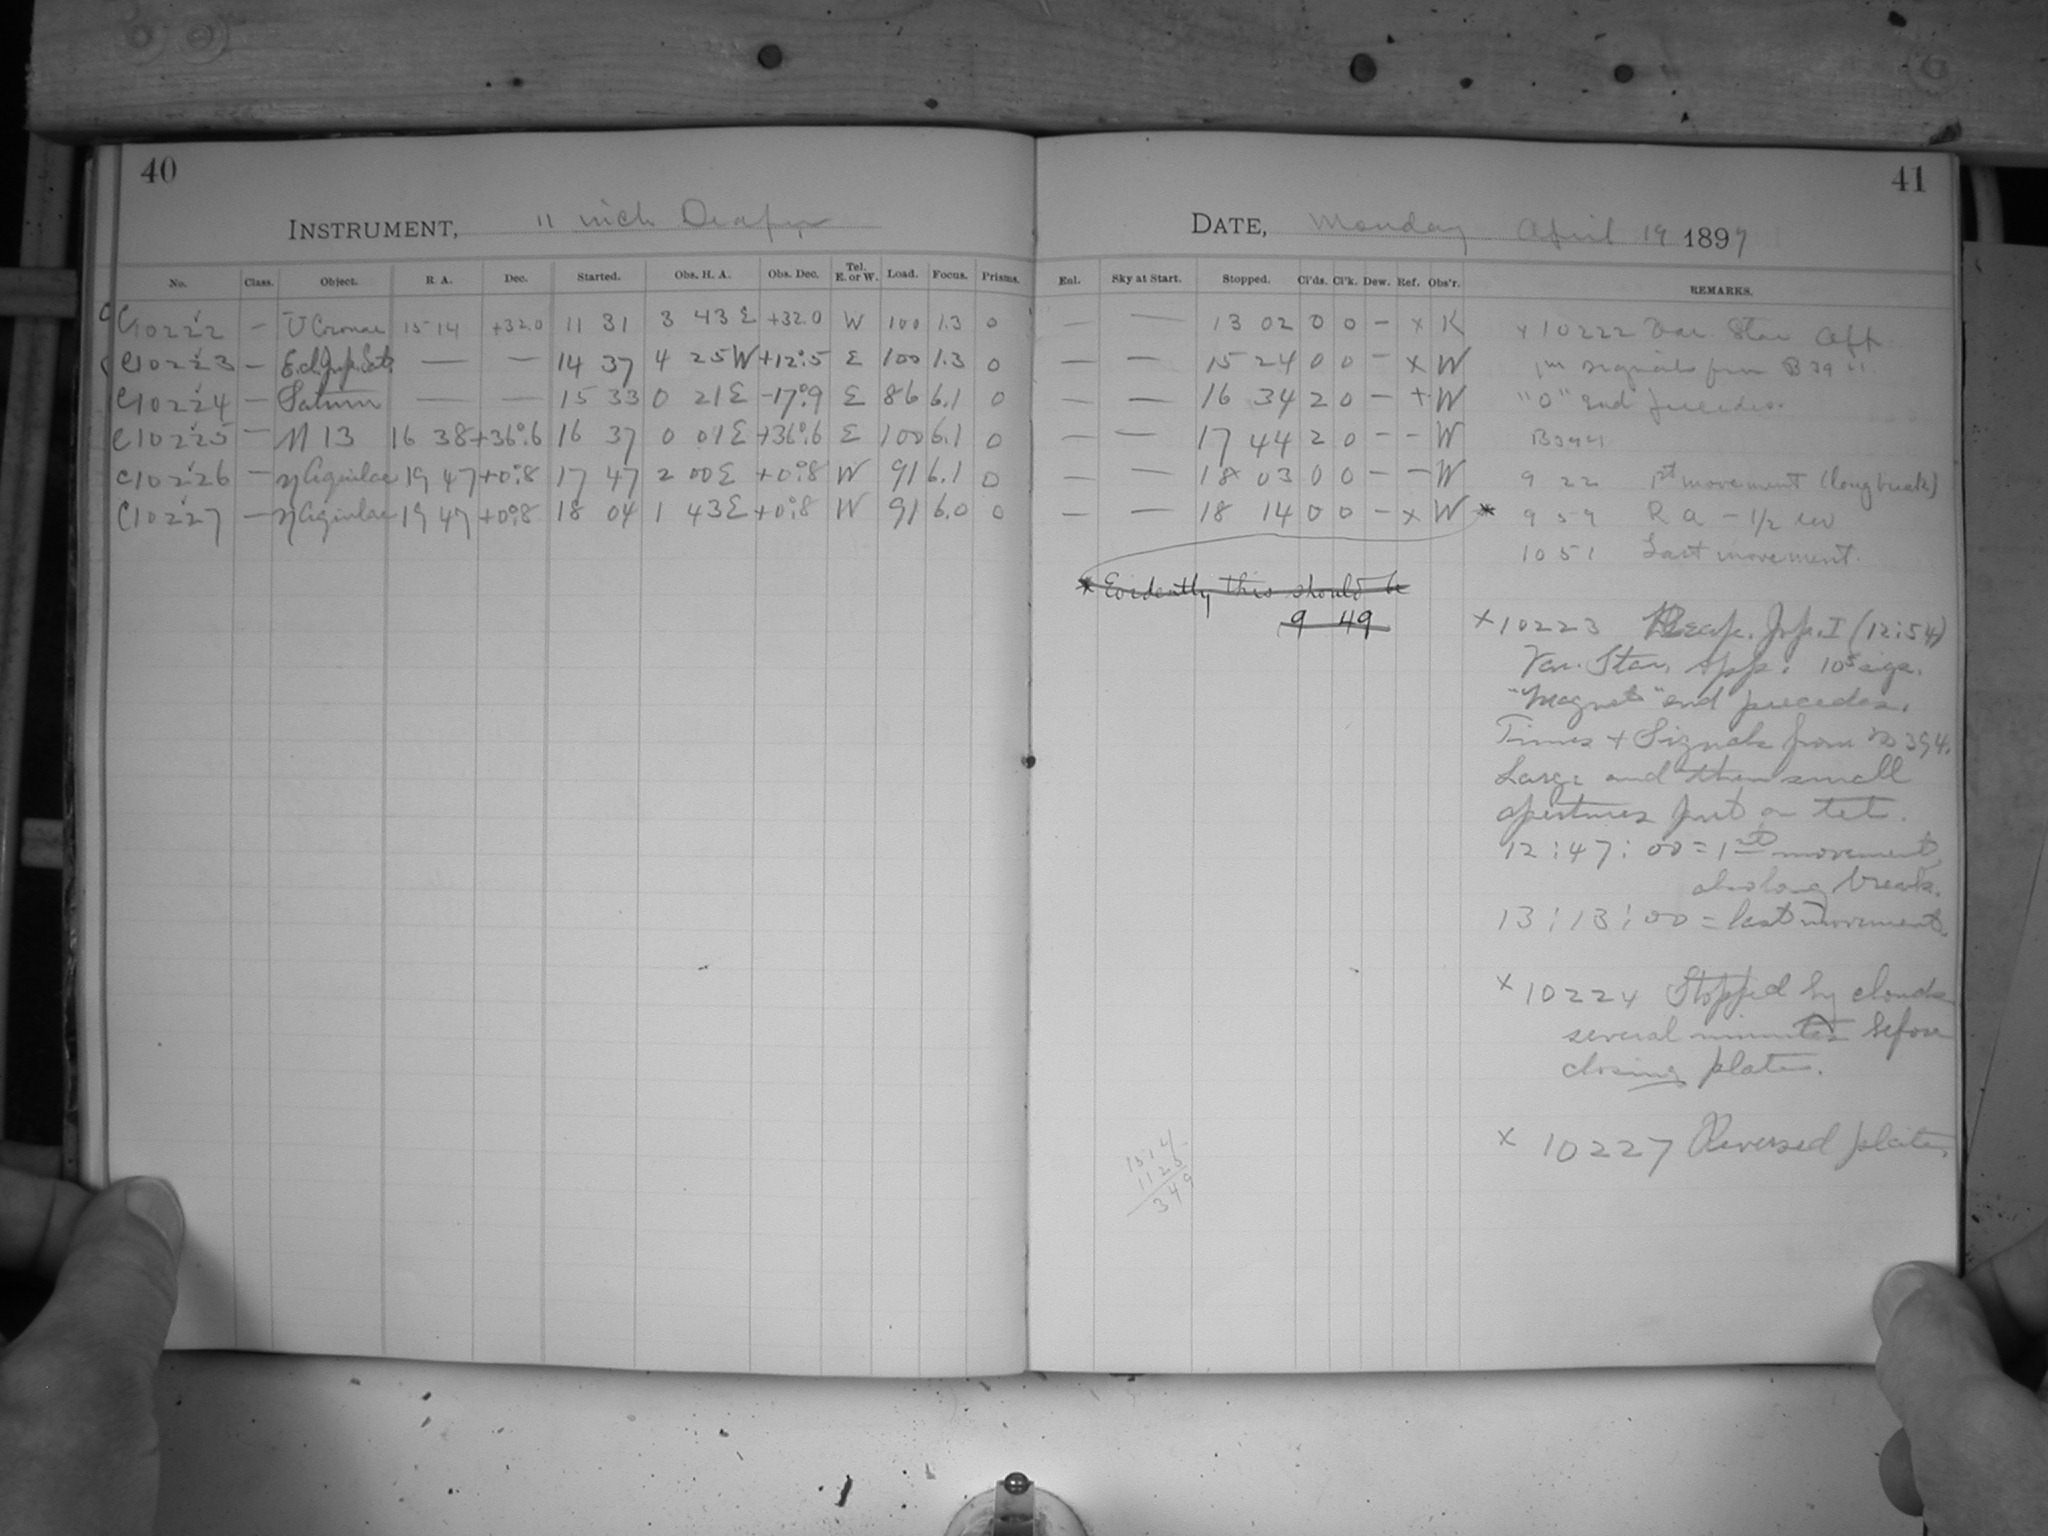 40
INSTRUMENT, 11 inch Draper
No. Class. Object. R. A. Dec. Started. Obs. H. A. Obs. Dec. Tel. E. or W. Load. Focus. Prisms.
C10222 — U Coronae 15 14 +32.0 11 31 3 43 E +32.0 W 100 1.3 0
C10223 — Ecl. Jup. Sat. — — 14 37 4 25 W +12°.5 E 100 1.3 0
C10224 — Saturn — — 15 33 0 21 E -17°.9 E 86 6.1 0
C10225 — M 13 16 38 +36°.6 16 37 0 01 E +36°.6 E 100 6.1 0
C10226 — η Aquilae 19 47 +0°.8 17 47 2 00 E +0°.8 W 91 6.1 0
C10227 — η Aquilae 19 47 +0°.8 18 04 1 43 E +0°.8 W 91 6.0 0
41
DATE, Monday April 19 1897
Enl. Sky at Start. Stopped. Cl'ds. Cl'k. Dew. Ref. Obs'r. REMARKS.
— — 13 02 0 0 — x K x 10222 Var. Star App.
— — 15 24 0 0 — x W 1m signals from B394
— — 16 34 2 0 — + W "O" end precedes.
— — 17 44 2 0 — — W B394
— — 18 03 0 0 — — W 9 22 1st movement (long break)
— — 18 14 0 0 — x W * 9 59 R a - 1/2 rev
10 51 Last movement.
* Evidently this should be
9 49
x 10223 Reap. Jup. I (12:54)
Var. Star. App. 10s sigs.
"Magnet" end precedes.
Times + Signals from B 394.
Large and then small
apertures put on tel.
12:47:00 = 1st movement,
also long break.
13:13:00 = last movement.
x 10224 Stopped by clouds
several minutes before
closing plate.
x 10227 Reversed plate.
15 14
11 25
3 49